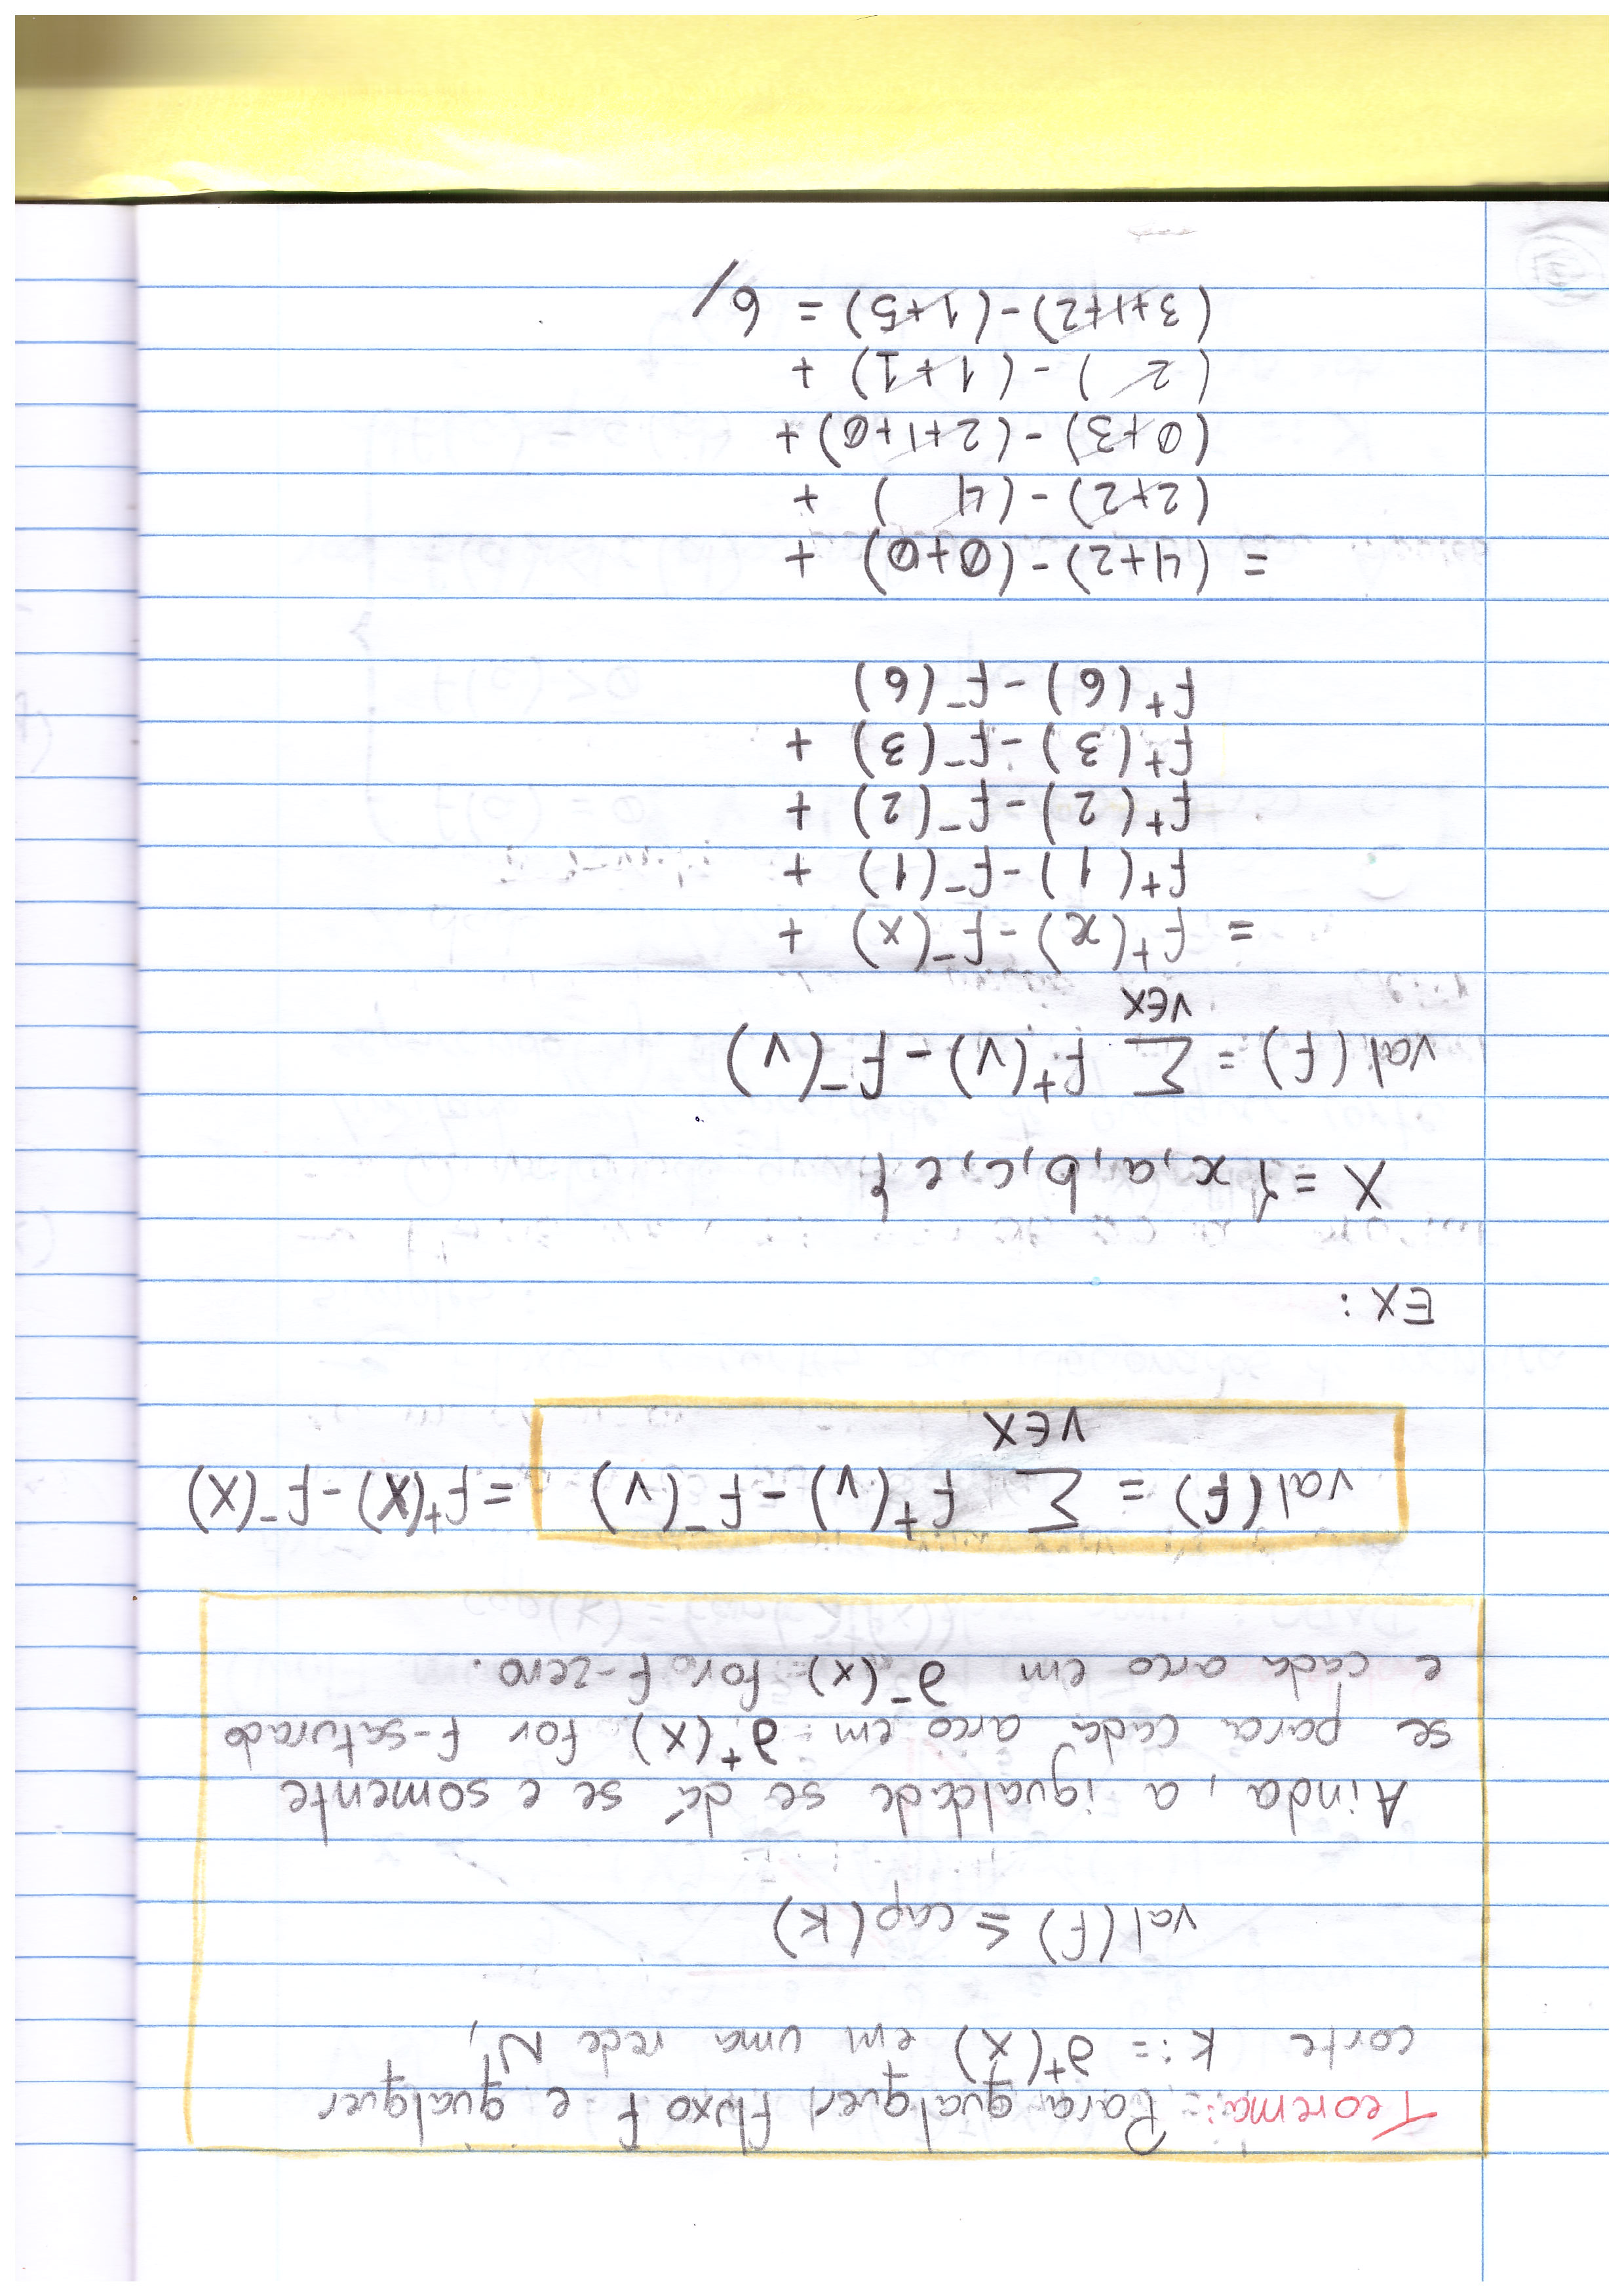 Teorema: Para qualquer fluxo f e qualquer
corte K := ∂⁺(X) em uma rede N,
val(f) ≤ cap(K)
Ainda, a igualdade se dá se e somente
se para cada arco em ∂⁺(X) for f-saturado
e cada arco em ∂⁻(X) for f-zero.
val(f) = Σ f⁺(v) - f⁻(v) = f⁺(X) - f⁻(X)
v∈X
EX:
X = {x, a, b, c, e}
val(f) = Σ f⁺(v) - f⁻(v)
v∈X
= f⁺(x) - f⁻(x) +
f⁺(1) - f⁻(1) +
f⁺(2) - f⁻(2) +
f⁺(3) - f⁻(3) +
f⁺(6) - f⁻(6)
= (4+2) - (0+0) +
(2+2) - (4 ) +
(0+3) - (2+1+0) +
(2 ) - (1+1) +
(3+1+2) - (1+5) = 6/